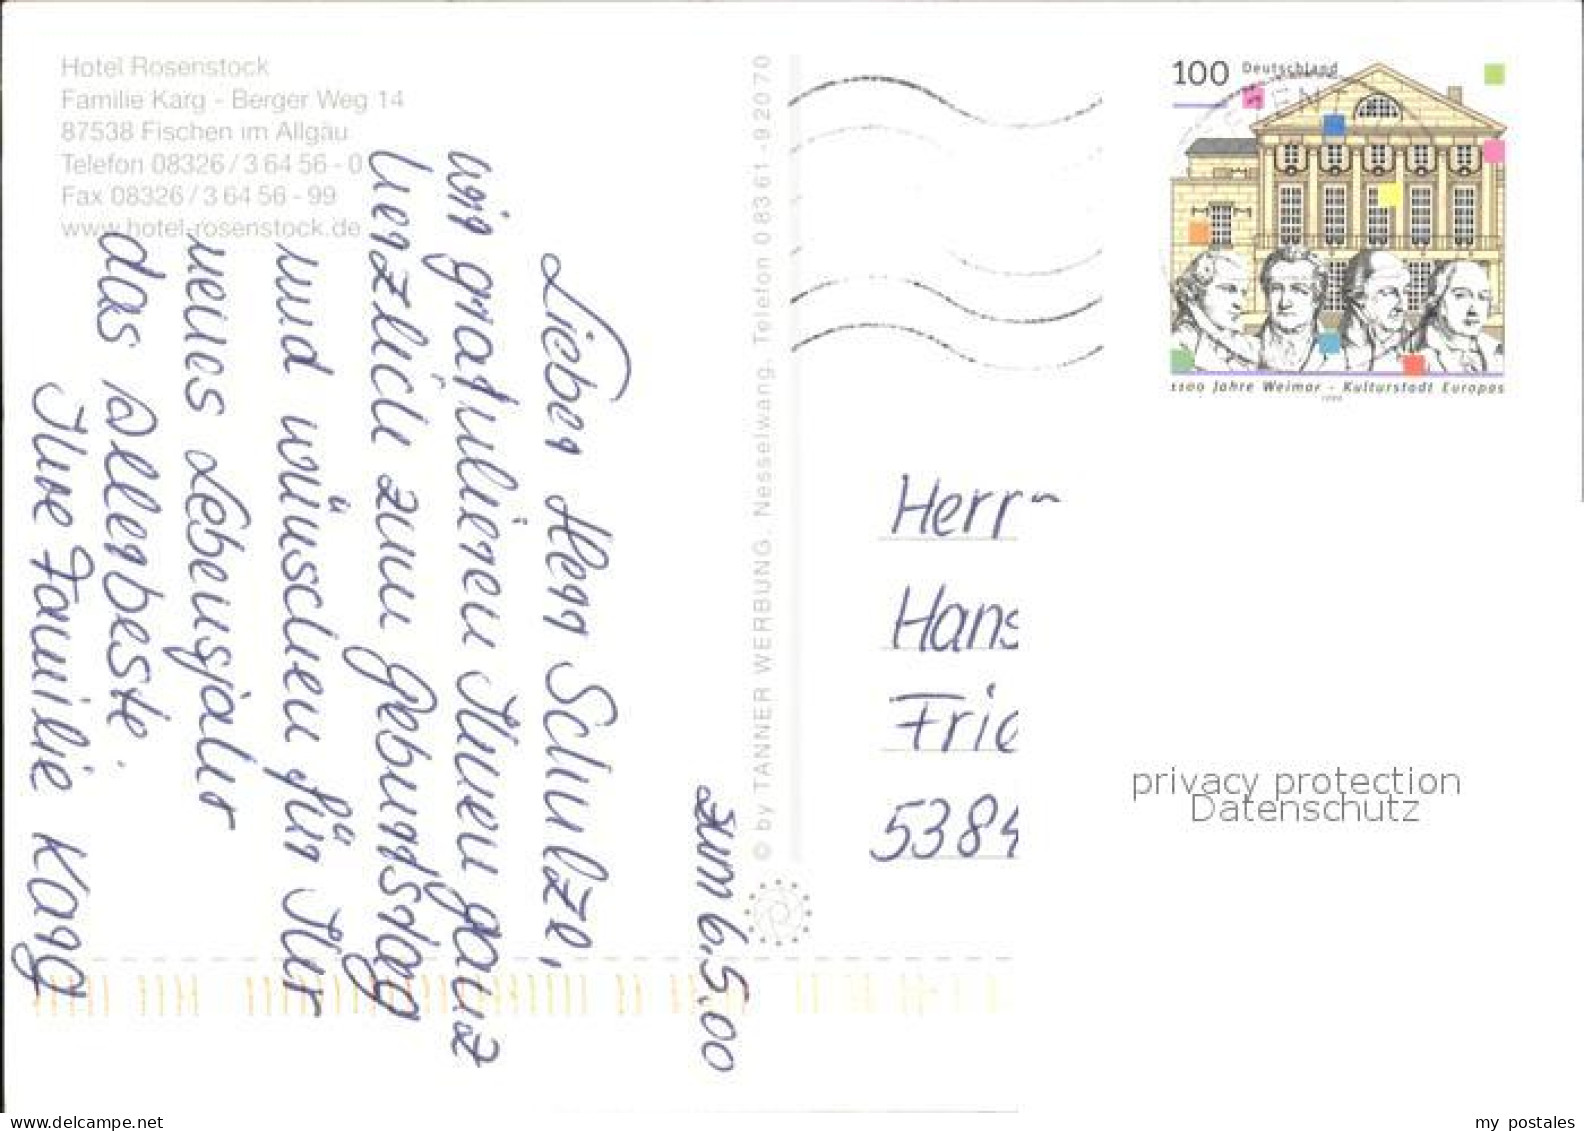 Hotel Rosenstock
Familie Karg - Berger Weg 14
87538 Fischen im Allgäu
Telefon 08326 / 3 64 56 - 0
Fax 08326 / 3 64 56 - 99
www.hotel-rosenstock.de
zum 6.5.00
Lieber Herr Schulze,
wir gratulieren Ihnen ganz
herzlich zum Geburtstag
und wünschen für Ihr
neues Lebensjahr
das Allerbeste.
Ihre Familie Karg
© by TANNER WERBUNG, Nesselwang, Telefon 0 83 61 - 9 20 70
100 Deutschland
1100 Jahre Weimar - Kulturstadt Europas
1999
Herrn
Hans
Fric
5384
privacy protection
Datenschutz
my postales